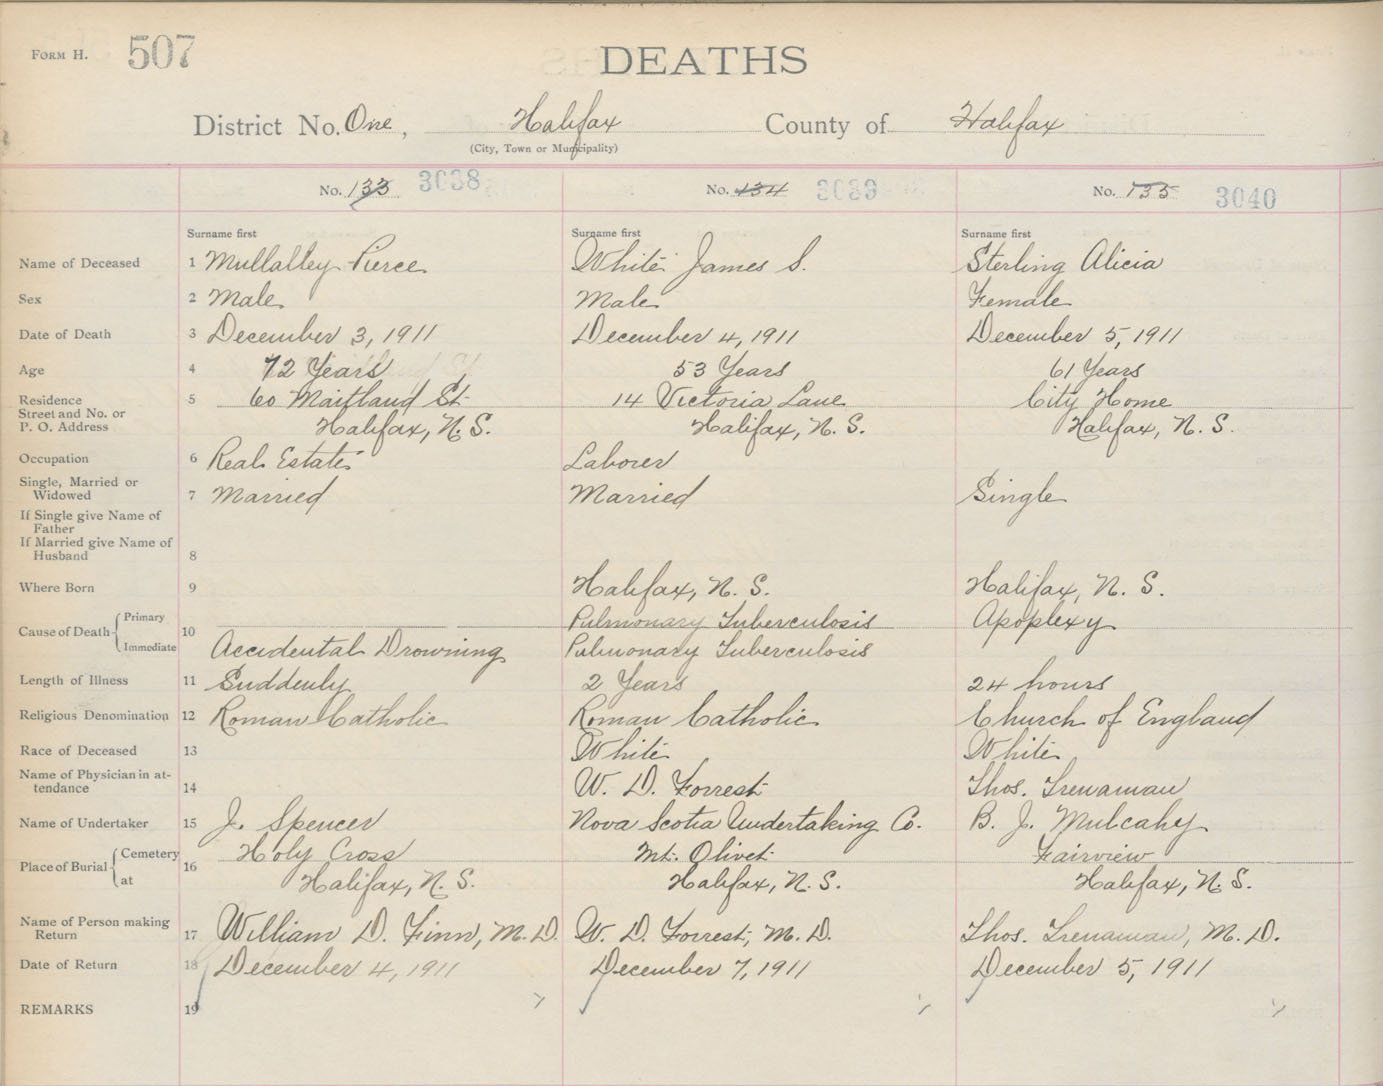 FORM H. 507
DEATHS
District No. One, Halifax County of Halifax
(City, Town or Municipality)
No. 133 3038 No. 134 3039 No. 135 3040
Surname first Surname first Surname first
Name of Deceased 1 Mullalley Pierce White James S. Sterling Alicia
Sex 2 Male Male Female
Date of Death 3 December 3, 1911 December 4, 1911 December 5, 1911
Age 4 72 Years 53 Years 61 Years
Residence 5 60 Maitland St. 14 Victoria Lane City Home
Street and No. or
P. O. Address Halifax, N. S. Halifax, N. S. Halifax, N. S.
Occupation 6 Real Estate Laborer
Single, Married or
Widowed 7 Married Married Single
If Single give Name of
Father
If Married give Name of
Husband 8
Where Born 9 Halifax, N. S. Halifax, N. S.
Primary Pulmonary Tuberculosis Apoplexy
Cause of Death 10
Immediate Accidental Drowning Pulmonary Tuberculosis
Length of Illness 11 Suddenly 2 Years 24 hours
Religious Denomination 12 Roman Catholic Roman Catholic Church of England
Race of Deceased 13 White White
Name of Physician in at-
tendance 14 W. D. Forrest Thos. Trenaman
Name of Undertaker 15 J. Spencer Nova Scotia Undertaking Co. B. J. Mulcahy
Cemetery Holy Cross Mt. Olivet Fairview
Place of Burial 16
at Halifax, N. S. Halifax, N. S. Halifax, N. S.
Name of Person making
Return 17 William D. Finn, M. D. W. D. Forrest, M. D. Thos. Trenaman, M. D.
Date of Return 18 December 4, 1911 December 7, 1911 December 5, 1911
REMARKS 19